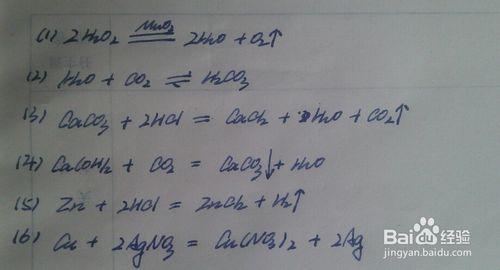 (1) 2H₂O₂ =MnO₂= 2H₂O + O₂↑
(2) H₂O + CO₂ ⇌ H₂CO₃
(3) CaCO₃ + 2HCl = CaCl₂ + H₂O + CO₂↑
(4) Ca(OH)₂ + CO₂ = CaCO₃↓ + H₂O
(5) Zn + 2HCl = ZnCl₂ + H₂↑
(6) Cu + 2AgNO₃ = Cu(NO₃)₂ + 2Ag
Baidu 经验
jingyan.baidu.com